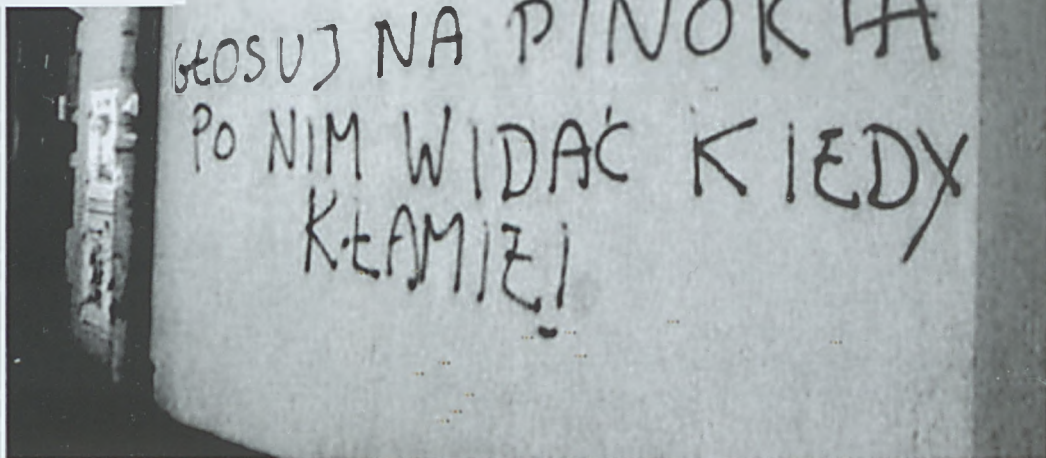 GŁOSUJ NA PINOKIA
PO NIM WIDAĆ KIEDY
KŁAMIE!